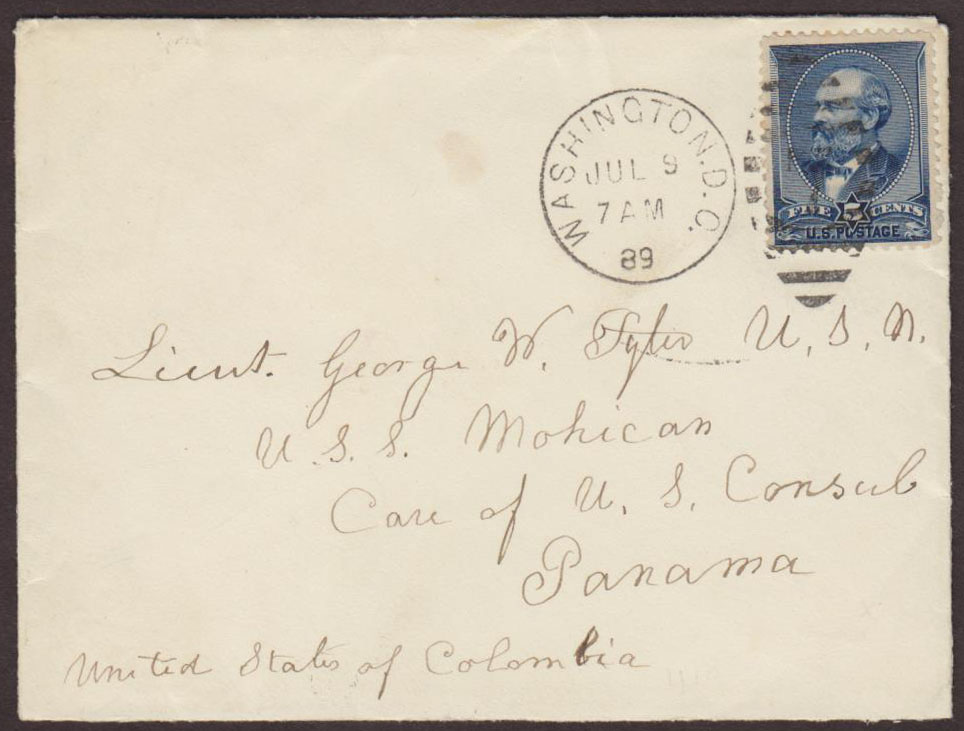 WASHINGTON. D. C.
JUL 9
7 AM
89
FIVE 5 CENTS
U.S. POSTAGE
Lieut. George W. Tyler U. S. N.
U. S. S. Mohican
Care of U. S. Consul
Panama
United States of Colombia